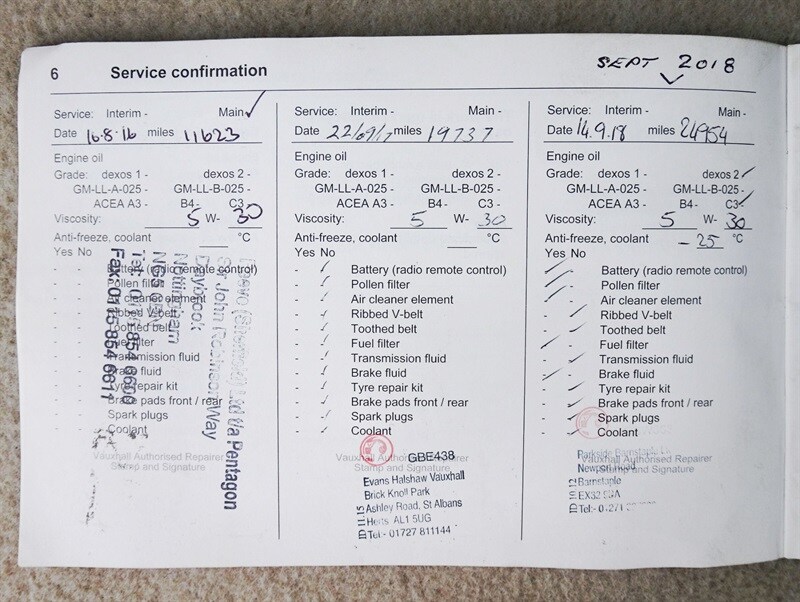 6 Service confirmation
SEPT 2018
Service: Interim - Main -
Date 16.8.16 miles 11623
Engine oil
Grade: dexos 1 - dexos 2 -
GM-LL-A-025 - GM-LL-B-025 -
ACEA A3 - B4 - C3 -
Viscosity: 5 W- 30
Anti-freeze, coolant °C
Yes No
- - Battery (radio remote control)
- - Pollen filter
- - Air cleaner element
- - Ribbed V-belt
- - Toothed belt
- - Fuel filter
- - Transmission fluid
- - Brake fluid
- - Tyre repair kit
- - Brake pads front / rear
- - Spark plugs
- - Coolant
Vauxhall Authorised Repairer
Stamp and Signature
t/a Pentagon
St John
Way
Daybrook
Nottingham
Fax: 0115 854 6611
Service: Interim - Main -
Date 22/09/17 miles 19737
Engine oil
Grade: dexos 1 - dexos 2 -
GM-LL-A-025 - GM-LL-B-025 -
ACEA A3 - B4 - C3 -
Viscosity: 5 W- 30
Anti-freeze, coolant °C
Yes No
- Battery (radio remote control)
- Pollen filter
- Air cleaner element
- Ribbed V-belt
- Toothed belt
- Fuel filter
- Transmission fluid
- Brake fluid
- Tyre repair kit
- Brake pads front / rear
- Spark plugs
- Coolant
Vauxhall Authorised Repairer
Stamp and Signature
GBE438
Evans Halshaw Vauxhall
Brick Knoll Park
Ashley Road, St Albans
Herts AL1 5UG
Tel:- 01727 811144
ID 11.15
Service: Interim - Main -
Date 14.9.18 miles 24954
Engine oil
Grade: dexos 1 - dexos 2
GM-LL-A-025 - GM-LL-B-025 -
ACEA A3 - B4 - C3
Viscosity: 5 W- 30
Anti-freeze, coolant - 25 °C
Yes No
- Battery (radio remote control)
- Pollen filter
- Air cleaner element
- Ribbed V-belt
- Toothed belt
- Fuel filter
- Transmission fluid
- Brake fluid
- Tyre repair kit
- Brake pads front / rear
- Spark plugs
- Coolant
Vauxhall Authorised Repairer
Stamp and Signature
Parkside Barnstaple
Newport Road
Barnstaple
EX32
Tel:-